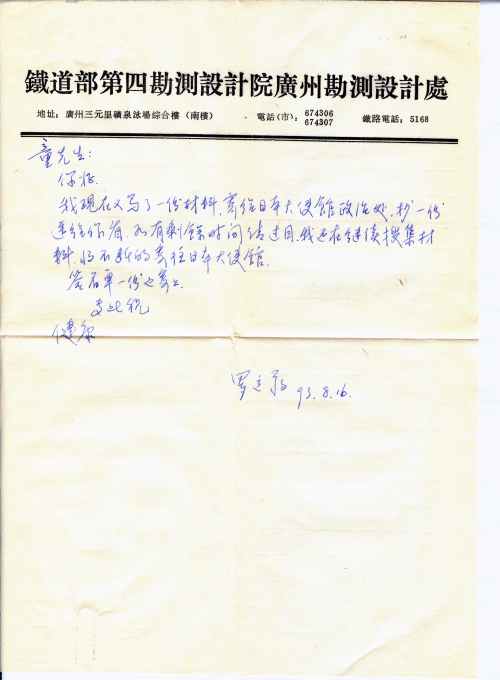 鐵道部第四勘測設計院廣州勘測設計處
地址：廣州三元里礦泉泳場綜合樓（南樓） 電話（市）：674306 674307 鐵路電話：5168
童先生：
你好.
我现在又写了一份材料，寄给日本大使館政治处，抄一份
送给你看，如有剩餘时间请过目，我还在继续搜集材
料，将不断的寄往日本大使館.
签名单一份也寄上.
专此祝
健康
罗 93.8.16.